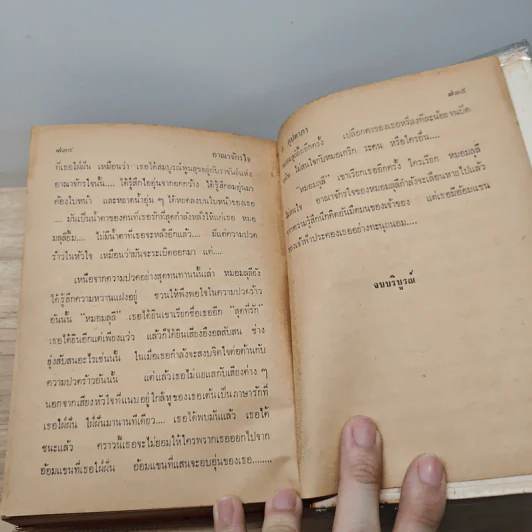 ๗๓๔
อาณาจักรใจ
ที่เธอใฝ่ฝัน เหมือนว่า เธอได้สมบูรณ์พูนสุขอยู่กับราชันแห่ง
อาณาจักรใจนั้น.... ได้รู้สึกไออุ่นจากอกกว้าง ได้รู้สึกลมอุ่นมา
ต้องใบหน้า และหยาดน้ำอุ่น ๆ ได้หยดลงบนใบหน้าของเธอ
.... มันเป็นน้ำตาของคนที่เธอรักที่สุดกำลังหลั่งให้แก่เธอ หมอ
มลุลียิ้ม.... ไม่มีน้ำตาที่เธอจะหลั่งอีกแล้ว.... มีแต่ความปวด
ร้าวในหัวใจ เหมือนว่ามันจะระเบิดออกมา แต่....
เหนือจากความปวดอย่างสุดทนทานนั้นเล่า หมอมลุลียัง
ได้รู้สึกความหวานแฝงอยู่ ชวนให้พึงพอใจในความปวดร้าว
อันนั้น "หมอมลุลี" เธอได้ยินเขาเรียกชื่อเธออีก "สุดที่รัก"
เธอได้ยินอีกแต่เพียงแว่ว แล้วก็ได้ยินเสียงอึงอลสับสน ช่าง
ยุ่งสับสนอะไรเช่นนั้น ในเมื่อเธอกำลังจะสงบจิตใจต่อต้านกับ
ความปวดร้าวอันนั้น แต่แล้วเธอไม่แยแสกับเสียงต่าง ๆ
นอกจากเสียงหัวใจที่แนบอยู่ใกล้หูของเธอเต้นเป็นภาษารักที่
เธอใฝ่ฝัน ใฝ่ฝันมานานทีเดียว.... เธอได้พบมันแล้ว เธอได้
ชนะแล้ว คราวนี้เธอจะไม่ยอมให้ใครพรากเธอออกไปจาก
อ้อมแขนที่เธอใฝ่ฝัน อ้อมแขนที่แสนจะอบอุ่นของเธอ........
๗๓๕
ก. สุรางคนางค์
เปลือกตาของเธอหรี่ลงทีละน้อยจนปิด
สนิท ไม่สนใจกับหมอเกริก ระคน หรือใครอื่น....
"หมอมลุลี" เขาเรียกเธออีกครั้ง ใครเรียก หมอมลุลี
ไม่สนใจ อาณาจักรใจของหมอมลุลีกำลังจะเลือนหายไปแล้ว
จากความรู้สึกนึกคิดอันมืดมนของเจ้าของ แต่เธอมีอ้อมแขน
ของเจ้าฟ้าประคองเธออย่างทะนุถนอม....
จบบริบูรณ์